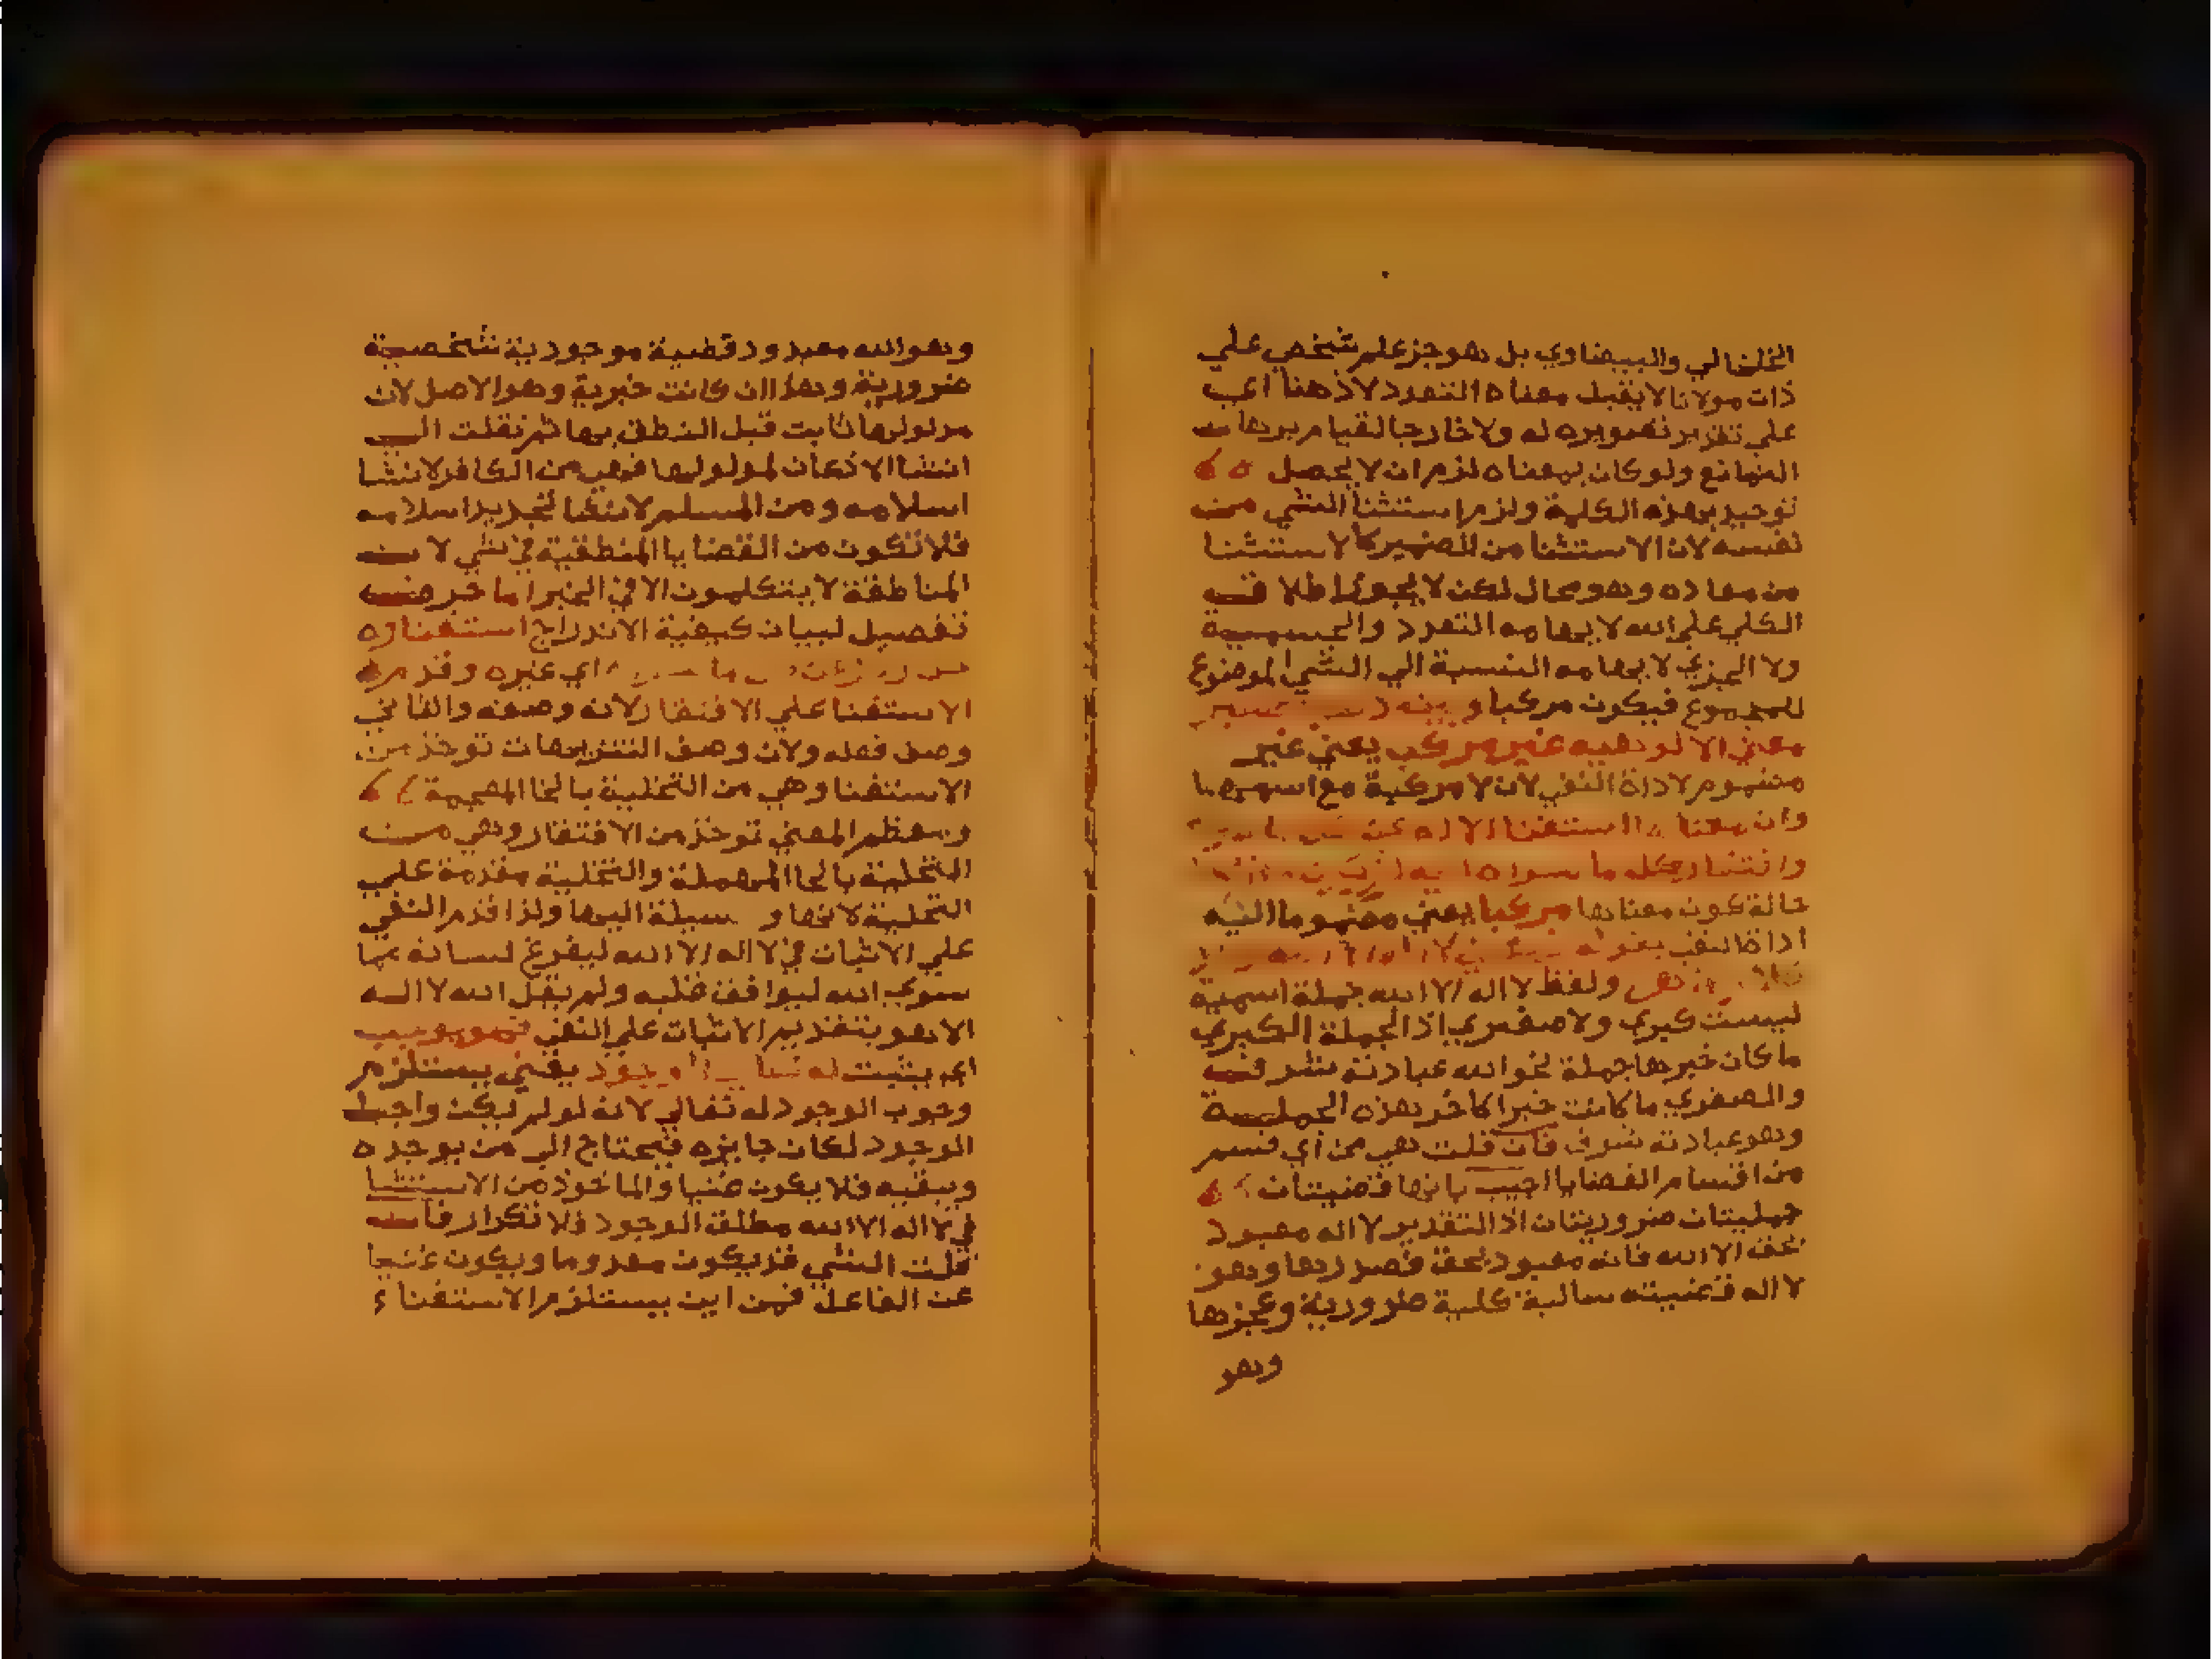 الخلخالي والبيضاوي بل هو جزءعلم شخصي علي
ذات مولانا لا يقبل معناه التعدد لا ذهنا اي
علي تقدير تصويره له ولا خارجا لقيام برهان
التمانع ولو كان بمعناه لزم ان لا يحصل
توحيد بهذه الكلمة ولزم استثنا الشي من
نفسه لان الاستثنا من الضمير كالاستثنا
من معاده وهو محال لكن لا يجوز اطلاق
الكلي علي الله لايهامه التعدد والجسمية
ولا الجزي لايهامه النسبة الي الشي الموضوع
للمجموع فيكون مركبا
معني الالوهيه غير مركب يعني غير
مضموم لاداة النفي لان لا مركبة مع اسمها
وان معنا استغنا الاله عن كل ما سواه
وافتقار كل ما سواه اليه
حالة كون معناها مركبا يعني مضموما اليه
اداة النفي بقوله
ولفظ لا اله الا الله جملة اسمية
ليست كبري ولا صغري اذ الجملة الكبري
ما كان خبرها جملة نحو الله عبادته شرف
والصغري ما كانت خبرا كاخر هذه الجملة
وهو عبادته شرف فان قلت هي من اي قسم
من اقسام القضايا اجيب بانها قضيتان
حمليتان ضروريتان اذ التقدير لا اله معبود
بحق الا الله فانه معبود بحق فصدرها وهو
لا اله قضيته سالبة كلية ضرورية وعجزها
وهو
وهو الله معبود قضية موجودية شخصية
ضرورية وهذا ان كانت خبرية وهو الاصل لان
مدلولها ثابت قبل النطق بها ثم نقلت الي
انشا الاذعان لمدلولها فهي من الكافر لانشا
اسلامه ومن المسلم لانشا تجديد اسلامه
فلا تكون من القضايا المنطقية في شي لان
المناطقة لا يتكلمون الا في الخبر
تفصيل لبيان كيفية الاندراج استغناوه
اي غيره وقدم
الاستغنا علي الافتقار لانه وصفه والثاني
وصف فعله ولان وصف التنزيهات توخذ من
الاستغنا وهي من التخلية بالخا المعجمة
ومعظم المعني توخذ من الافتقار وهي من
التحلية بالحا المهملة والتخلية مقدمة علي
التحلية لانها وسيلة اليها ولذا قدم النفي
علي الاثبات في لا اله الا الله ليفرغ لسانه مما
سوي الله ليوافق قلبه ولم يقل الله لا اله
الا هو بتقديم الاثبات علي النفي فهو يوجب
اي يثبت له تعالي الوجود يعني يستلزم
وجوب الوجود له تعالي لانه لو لم يكن واجب
الوجود لكان جايزه فيحتاج الي من يوجده
ويبقيه فلا يكون غنيا والماخوذ من الاستثنا
في لا اله الا الله مطلق الوجود فلا تكرار فان
قلت الشي قد يكون معدوما ويكون غنيا
عن الفاعل فمن اين يستلزم الاستغناء